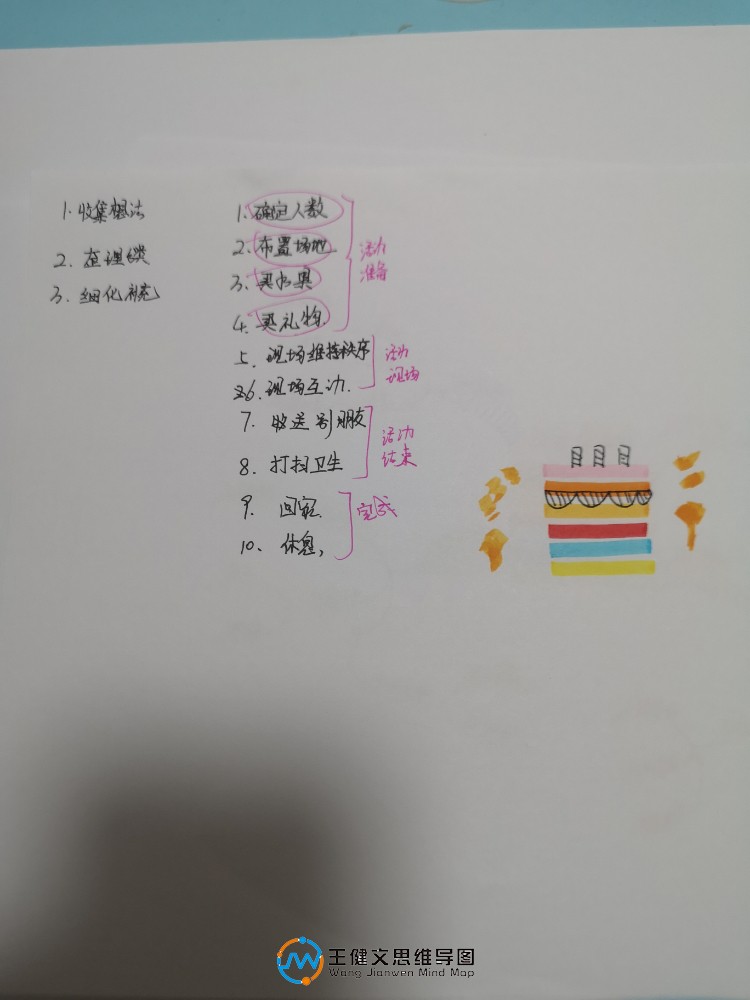 1. 收集想法
2. 整理归类
3. 细化补充
1. 确定人数
2. 布置场地
3. 买水果
4. 买礼物
活动
准备
5. 现场维持秩序
6. 现场互动
活动
现场
7. 欢送别朋友
8. 打扫卫生
活动
结束
9. 回家
10. 休息
完成
王健文思维导图
Wang Jianwen Mind Map